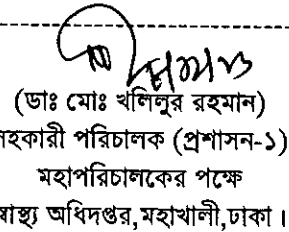 (ডাঃ মোঃ খলিলুর রহমান)
সহকারী পরিচালক (প্রশাসন-১)
মহাপরিচালকের পক্ষে
স্বাস্থ্য অধিদপ্তর,মহাখালী,ঢাকা।